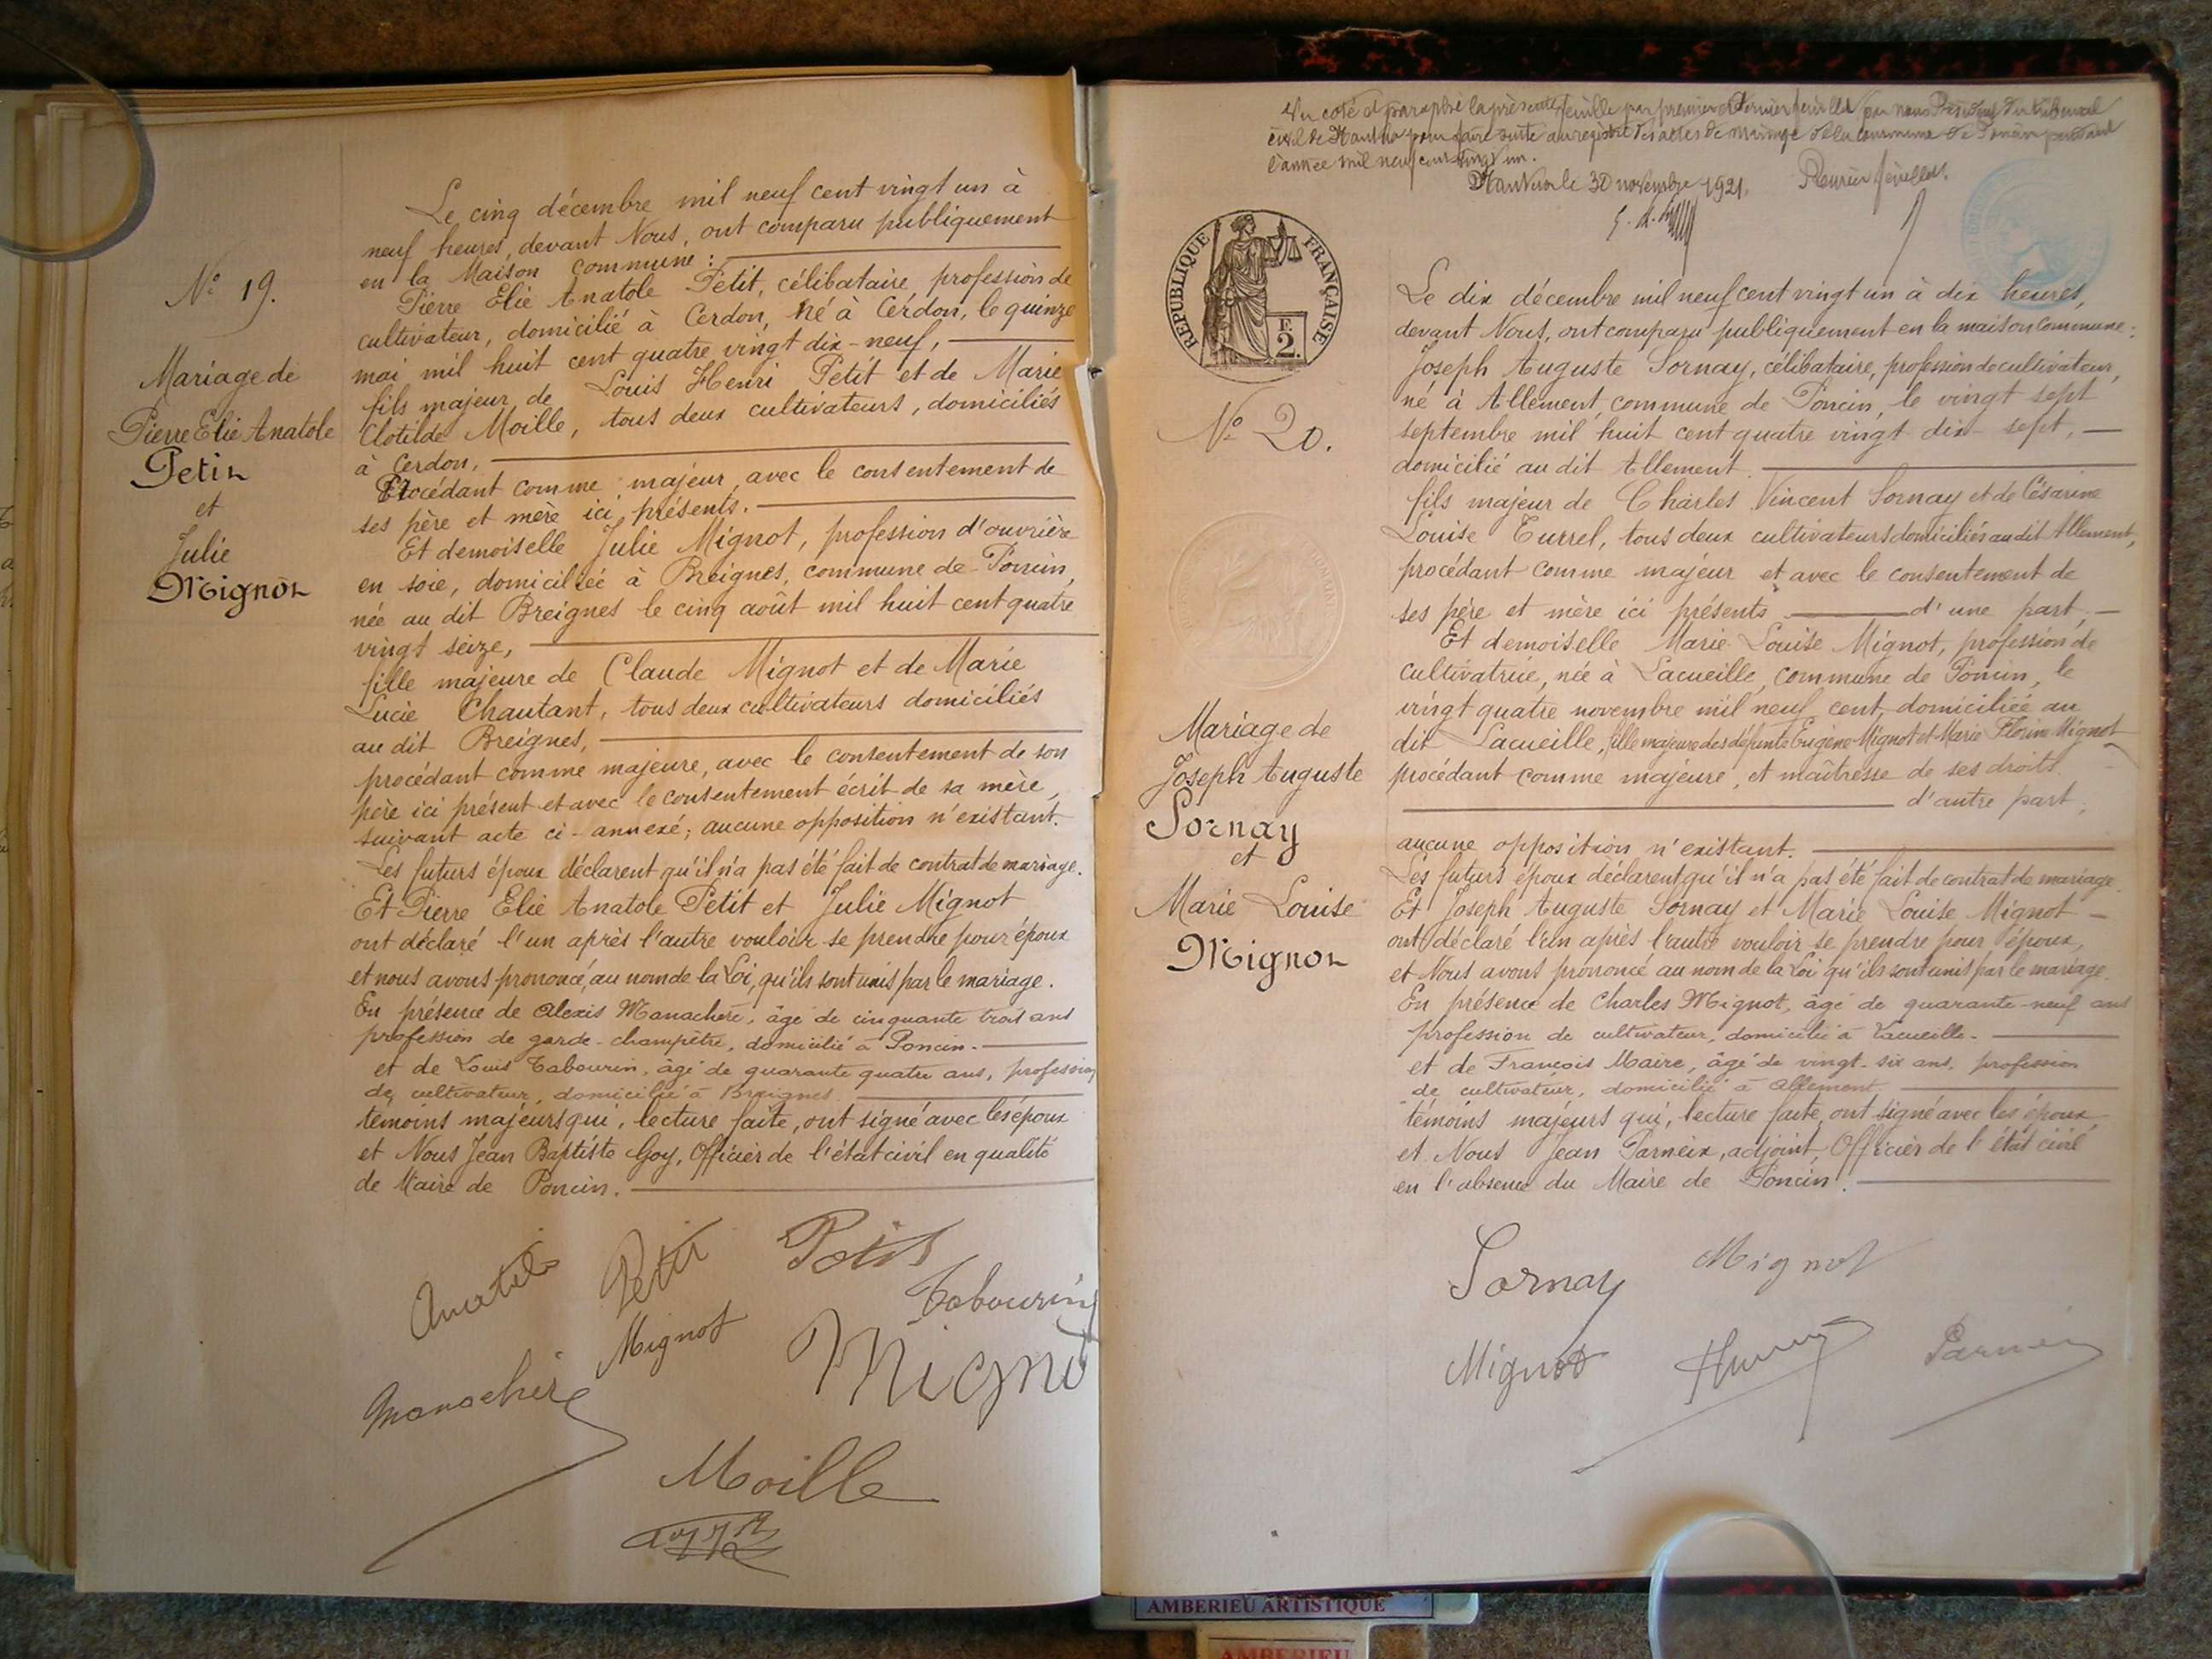 Nº 19.
Mariage de
Pierre Elie Anatole
Petit
et
Julie
Mignot
Le cinq décembre mil neuf cent vingt un à
neuf heures, devant Nous, ont comparu publiquement
en la Maison commune :
Pierre Elie Anatole Petit, célibataire, profession de
cultivateur, domicilié à Cerdon, né à Cerdon, le quinze
mai mil huit cent quatre vingt dix-neuf,
fils majeur de Louis Henri Petit et de Marie
Clotilde Moille, tous deux cultivateurs, domiciliés
à Cerdon,
Procédant comme majeur, avec le consentement de
ses père et mère ici présents.
Et demoiselle Julie Mignot, profession d'ouvrière
en soie, domiciliée à Breignes, commune de Poncin,
née au dit Breignes le cinq août mil huit cent quatre
vingt seize,
fille majeure de Claude Mignot et de Marie
Lucie Chautant, tous deux cultivateurs domiciliés
au dit Breignes,
procédant comme majeure, avec le consentement de son
père ici présent et avec le consentement écrit de sa mère,
suivant acte ci-annexé; aucune opposition n'existant.
Les futurs époux déclarent qu'il n'a pas été fait de contrat de mariage.
Et Pierre Elie Anatole Petit et Julie Mignot
ont déclaré l'un après l'autre vouloir se prendre pour époux
et nous avons prononcé, au nom de la Loi, qu'ils sont unis par le mariage.
En présence de Alexis Manachère, âgé de cinquante trois ans
profession de garde-champêtre, domicilié à Poncin.
et de Louis Tabourin, âgé de quarante quatre ans, profession
de cultivateur, domicilié à Breignes
témoins majeurs qui, lecture faite, ont signé avec les époux
et Nous Jean Baptiste Goy, Officier de l'état civil en qualité
de Maire de Poncin.
Anatole Petit Petit
Tabourin
Mignot Mignot
Manachère
Moille
Vu coté et paraphé la présente feuille par premier et dernier feuillet par nous Président du tribunal
civil de Nantua pour faire suite au registre des actes de mariage de la commune de Poncin pendant
l'année mil neuf cent vingt un.
Nantua le 30 novembre 1921. Premier feuillet.
REPUBLIQUE FRANÇAISE
F. 2.
Nº 20.
Mariage de
Joseph Auguste
Sornay
et
Marie Louise
Mignot
Le dix décembre mil neuf cent vingt un à dix heures,
devant Nous, ont comparu publiquement en la maison commune :
Joseph Auguste Sornay, célibataire, profession de cultivateur,
né à Allement, commune de Poncin, le vingt sept
septembre mil huit cent quatre vingt dix-sept,
domicilié au dit Allement.
fils majeur de Charles Vincent Sornay et de Césarine
Louise Turrel, tous deux cultivateurs domiciliés au dit Allement,
procédant comme majeur et avec le consentement de
ses père et mère ici présents d'une part,
Et demoiselle Marie Louise Mignot, profession de
cultivatrice, née à Lacueille, commune de Poncin, le
vingt quatre novembre mil neuf cent, domiciliée au
dit Lacueille, fille majeure des défunts Eugène Mignot et Marie Florine Mignot
procédant comme majeure, et maîtresse de ses droits.
d'autre part,
aucune opposition n'existant.
Les futurs époux déclarent qu'il n'a pas été fait de contrat de mariage.
Et Joseph Auguste Sornay et Marie Louise Mignot
ont déclaré l'un après l'autre vouloir se prendre pour époux,
et Nous avons prononcé au nom de la Loi qu'ils sont unis par le mariage.
En présence de Charles Mignot, âgé de quarante-neuf ans
profession de cultivateur, domicilié à Lacueille.
et de François Maire, âgé de vingt-six ans, profession
de cultivateur, domicilié à Allement.
témoins majeurs qui, lecture faite, ont signé avec les époux,
et Nous Jean Parneix, adjoint, Officier de l'état civil
en l'absence du Maire de Poncin.
Sornay Mignot
Mignot Parneix
AMBERIEU ARTISTIQUE
AMBERIEU